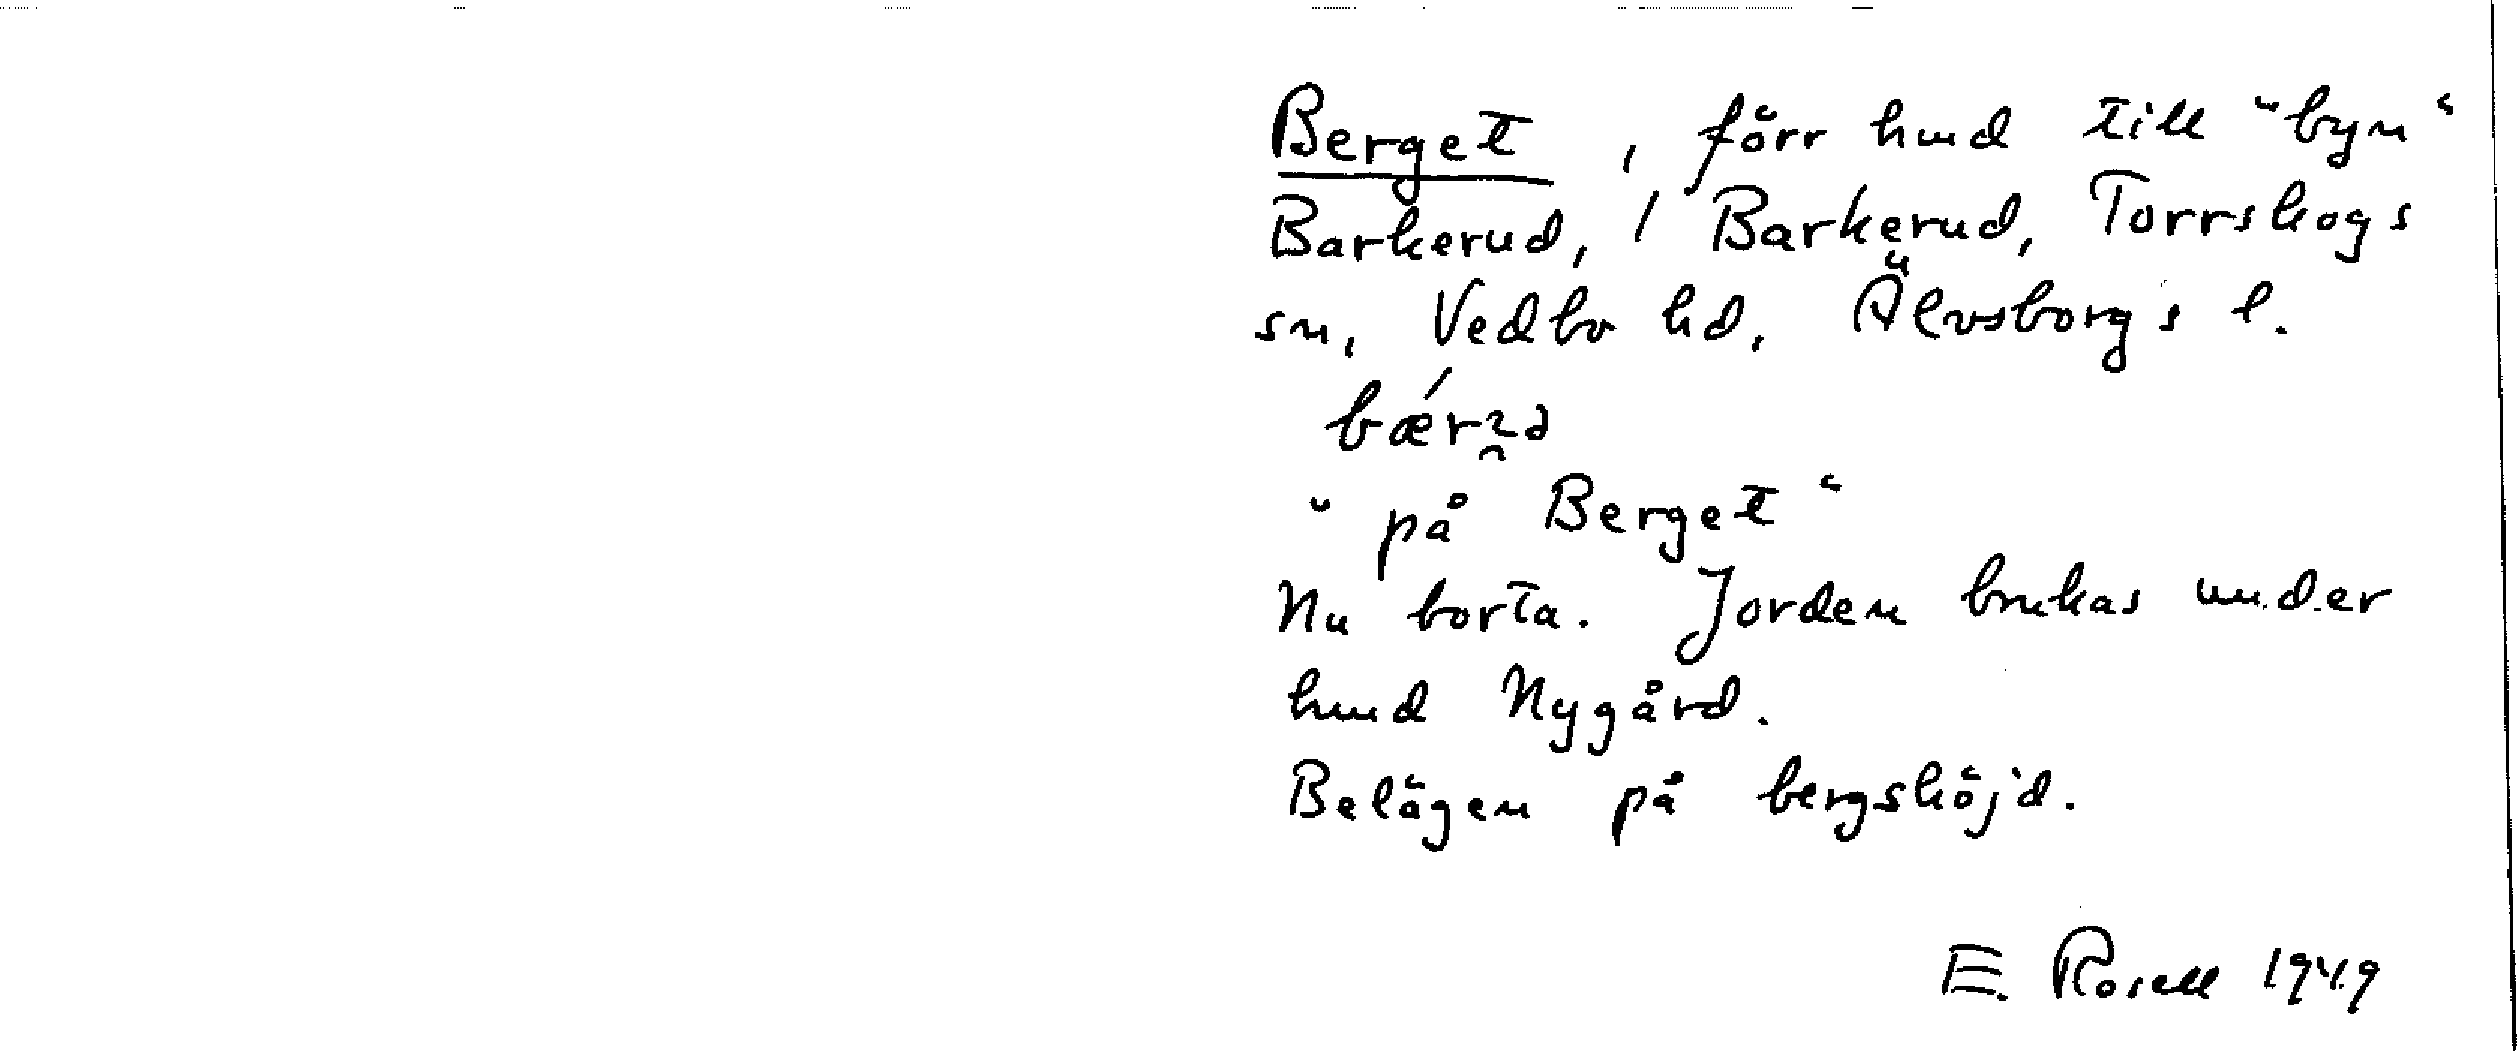 Berget, förr hmd till "byn"
Barkerud, / Barkerud, Torrskogs
sn, Vedbo hd, Älvsborgs l.
"på Berget"
Nu borta. Jorden brukas under
hmd Nygård.
Belägen på bergshöjd.
E. Rosell 1949